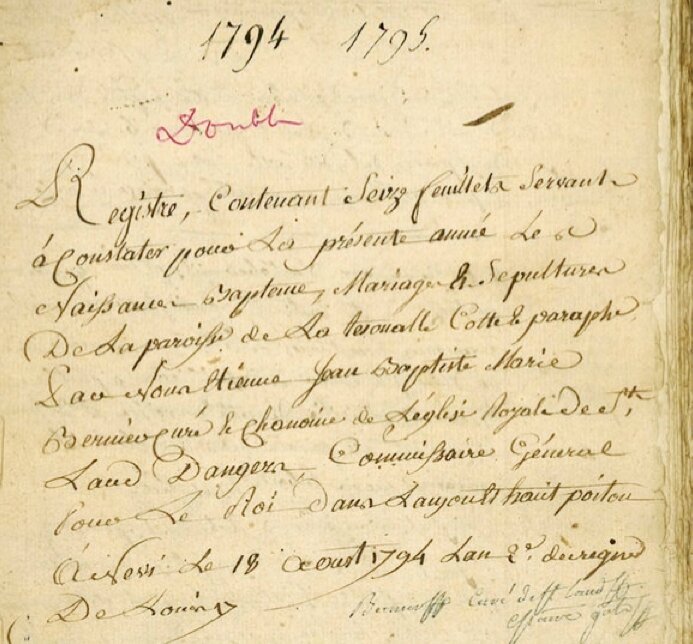 1794 1795.
Double
Registre, Contenant Seize feuillets Servant
à Constater pour La présente année Les
Naissance Bapteme, Mariage & Sepultures
De La paroisse de La tesoualle Cotté & paraphé
Par Nous Etienne Jean Baptiste Marie
Bernier curé & chanoine de L'église Royale De St.
Laud Dangers, Commissaire Général
Pour Le Roi Dans Lanjou & haut poitou
A Nevi Le 18 Aoust 1794 Lan 2e. du regne
De Louis 17
Bernier Curé de St Laud